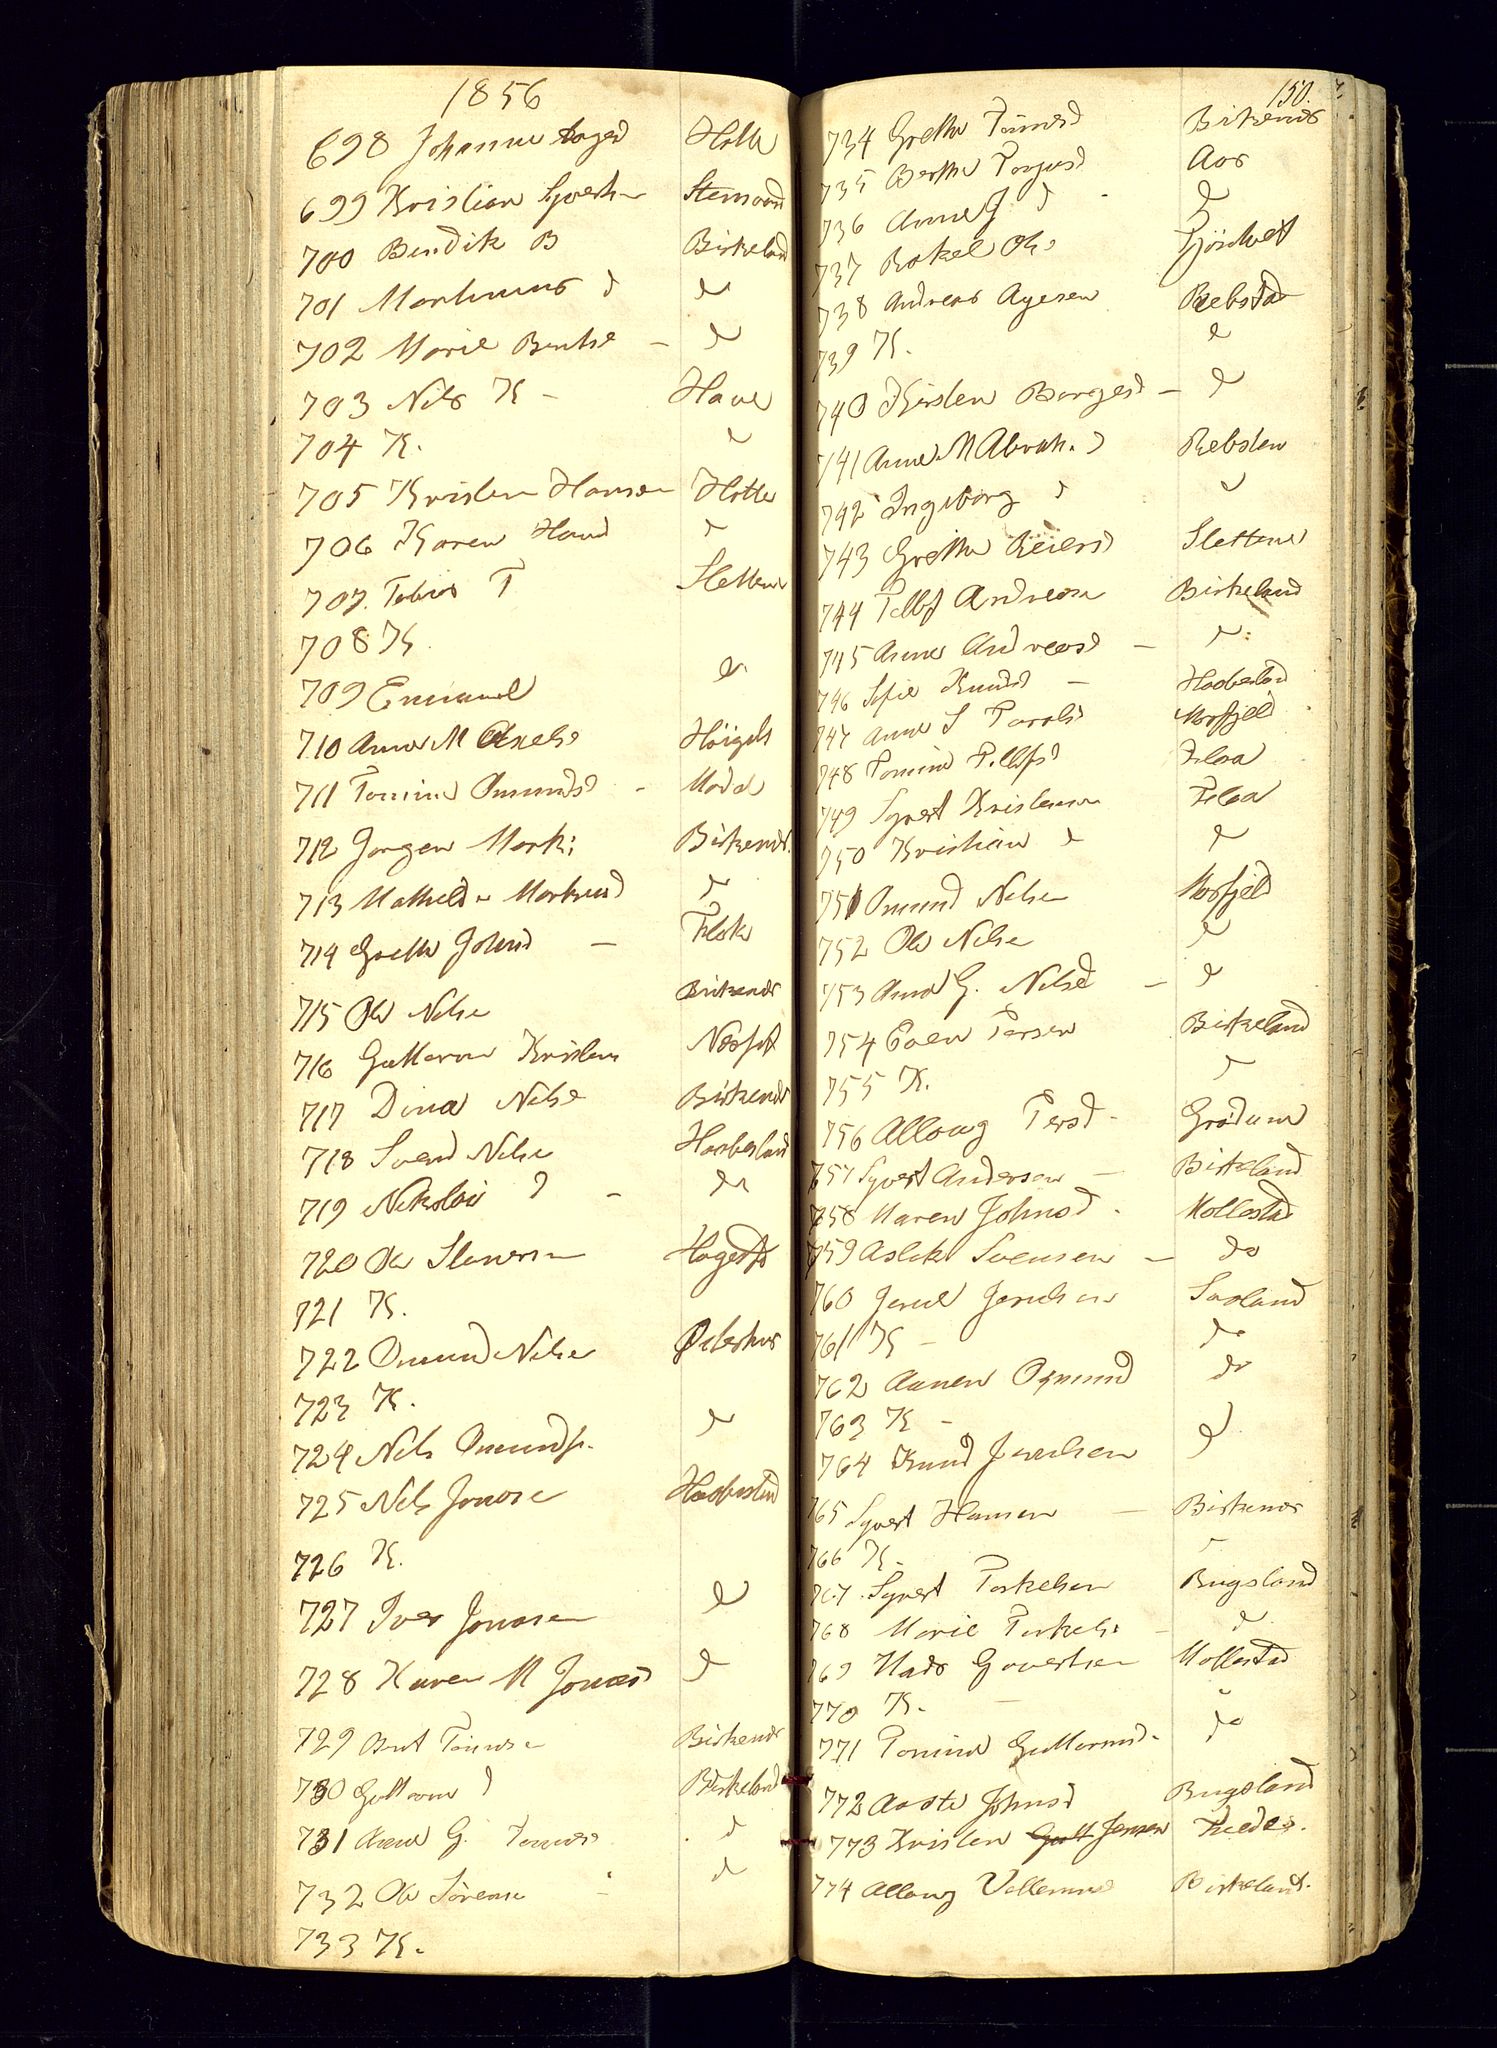 1856
698 Johanne Aagesd Holte
699 Kristian Syverts Stemoen
700 Bendik B Birkeland
701 Markunus d do
702 Marie Bents do
703 Nils K - Have
704 K. do
705 Kristen Hansen Holte
706 Karen Hansd do
707. Tobias T Slettene
708 K.
709 Emanuel do
710 Anne M Axels
711 Tomine Omundsd - Modal
712 Jørgen Mark: Birkenes
713 Mathilde Markusd do
714 Grethe Johnsd - Flak
715 Ole Nilse Birkenes
716 Guttorm Kristens
717 Dina Nilse Birkenes
718 Svend Nilse Haabesland
719 Nikolai d - do
720 Ole Stenersen
721 K.
722 Omund Nilse
723 K.
724 Nils Omunds. do
725 Nils Jonase Haabesland
726 K.
727 Iver Jonasen do
728 Karen M Jonasd do
729 Bent Tønnese Birkenes
730 Guttorm d Birkeland
731 Anne G. Tønnes do
732 Ole Sørense do
733 K.
150.
734 Grethe Tønnesd Birkenes
735 Berthe Torjusd Aas
736 Anne G d - do
737 Rakel Ols
738 Andreas Agesen Rebstad
739 K. do
740 Kirsten Børgesd - do
741 Anne M Abrah. d Rebsten
742 Ingeborg d do
743 Grethe Reiersd Slettene
744 Tellef Andreasen Birkeland
745 Anne Andreasd - do
746 Sofie Knudsd - Haabesland
747 Anne S Taralsd Mosfjeld
748 Tomine Tellefsd Flaa
749 Syvert Kristensen Flaa
750 Kristian d do
751 Omund Nilsen Mosfjeld
752 Ole Nilse do
753 Anne G. Nilsd - do
754 Even Tersen Birkeland
755 K. do
756 Allaug Tersd - Grødum
757 Syvert Andersen - Birkeland
758 Maren Johnsd - Mollestad
759 Aslak Svensen - do
760 Jerul Jerulsen Søsland
761 K - do
762 Aanen Ogmund do
763 K -
764 Knud Jerulsen do
765 Syvert Hansen - Birkenes
766 K. do
767. Syvert Torkelsen Bugsland
768 Marie Torkels - do
769 Mads Govertsen Mollestad
770 K. - do
771 Tomine Guttormsd. do
772 Aaste Johnsd Bugsland
773 Kristen Gutt Jensen
774 Allaug Vellemsd Birkeland.